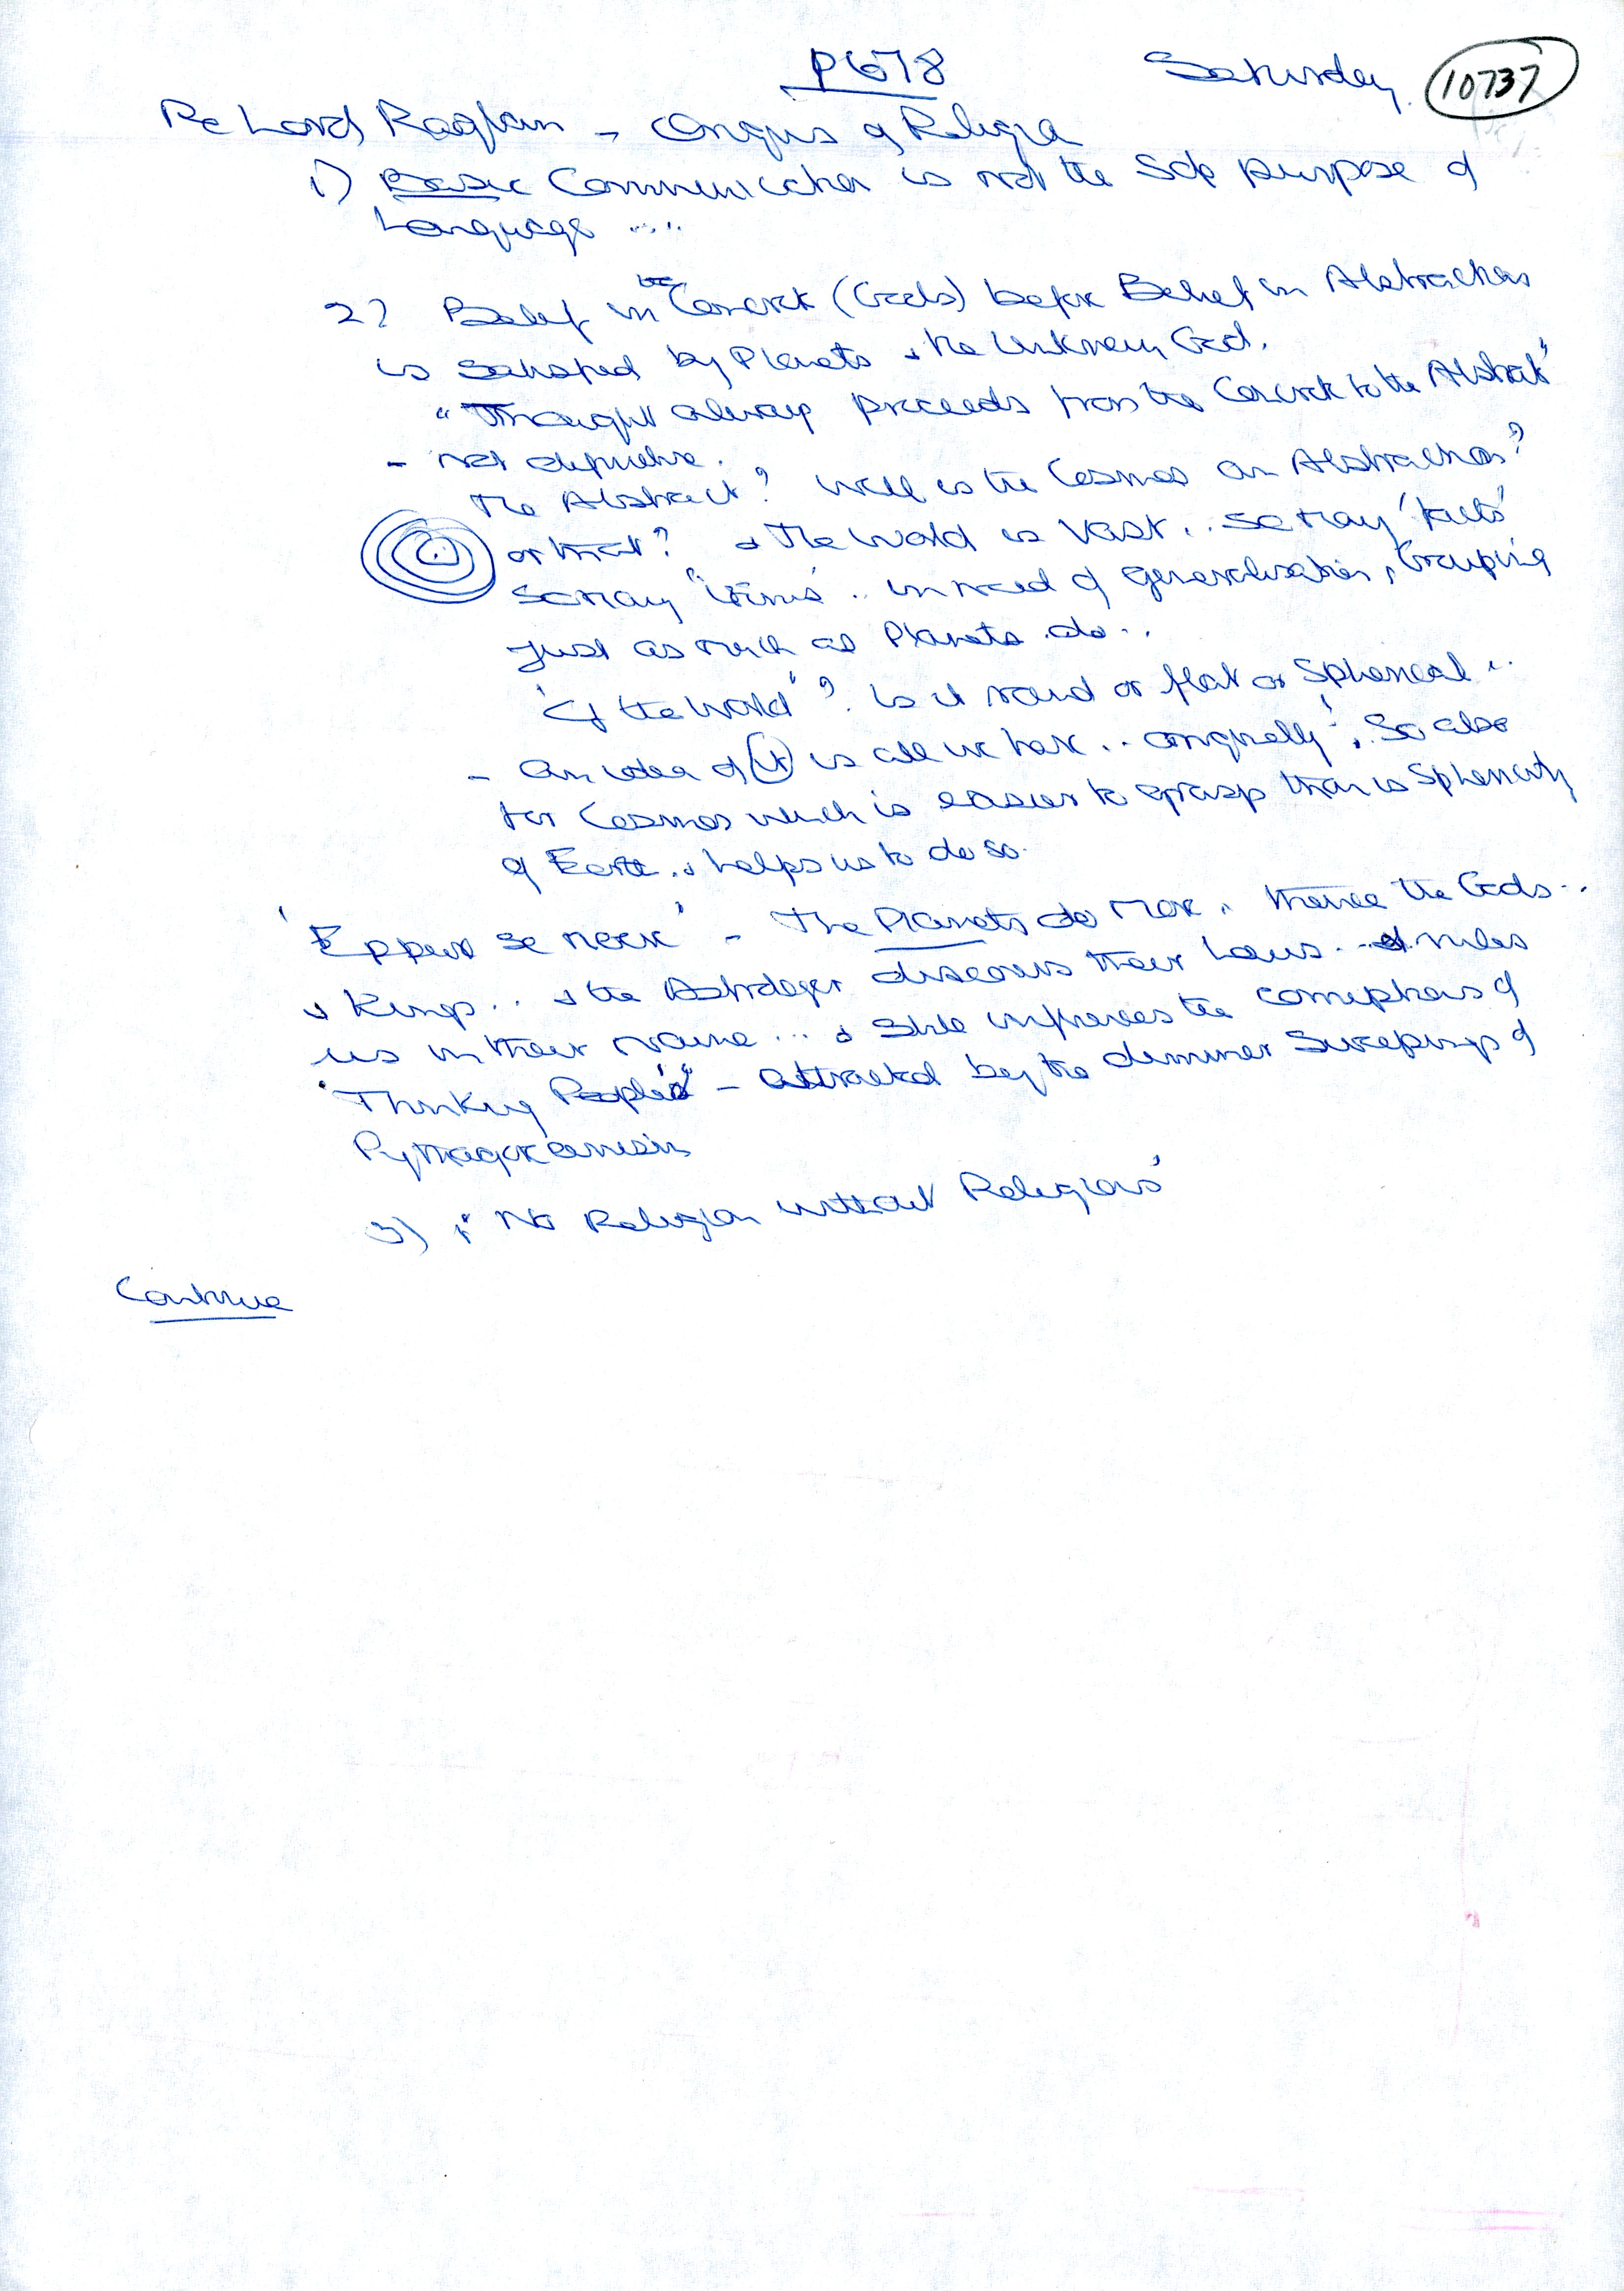 P678 Saturday. 10737
Re Lord Raglan - Origins of Religion
1) Basic Communication is not the Sole purpose of
Language ....
2) Belief in the Concrete (Gods) before Belief in Abstractions
is satisfied by Planets & the Unknown God.
"Thought always proceeds from the Concrete to the Abstract"
- not definitive.
The Abstract? Well is the Cosmos an Abstraction?
or what? & The World is Vast .. so many 'facts'
so many 'items' .. in need of generalisation, Grouping
just as much as Planets do ..
'Of the World'? Is it round or flat or Spherical ..
- An idea of it is all we have .. originally! So also
for Cosmos which is easier to grasp than is Sphericity
of Earth .. & helps us to do so.
'Eppur se neve' - The Planets do move, thence the Gods ..
& Kings .. & the Astrologer discovers their Laws .. & rules
us in their name ... & State influences the corruptions of
'Thinking People' - attracted by the dimmer Sweepings of
Pythagoreanism
3) 'No Religion without Religions'
Continue